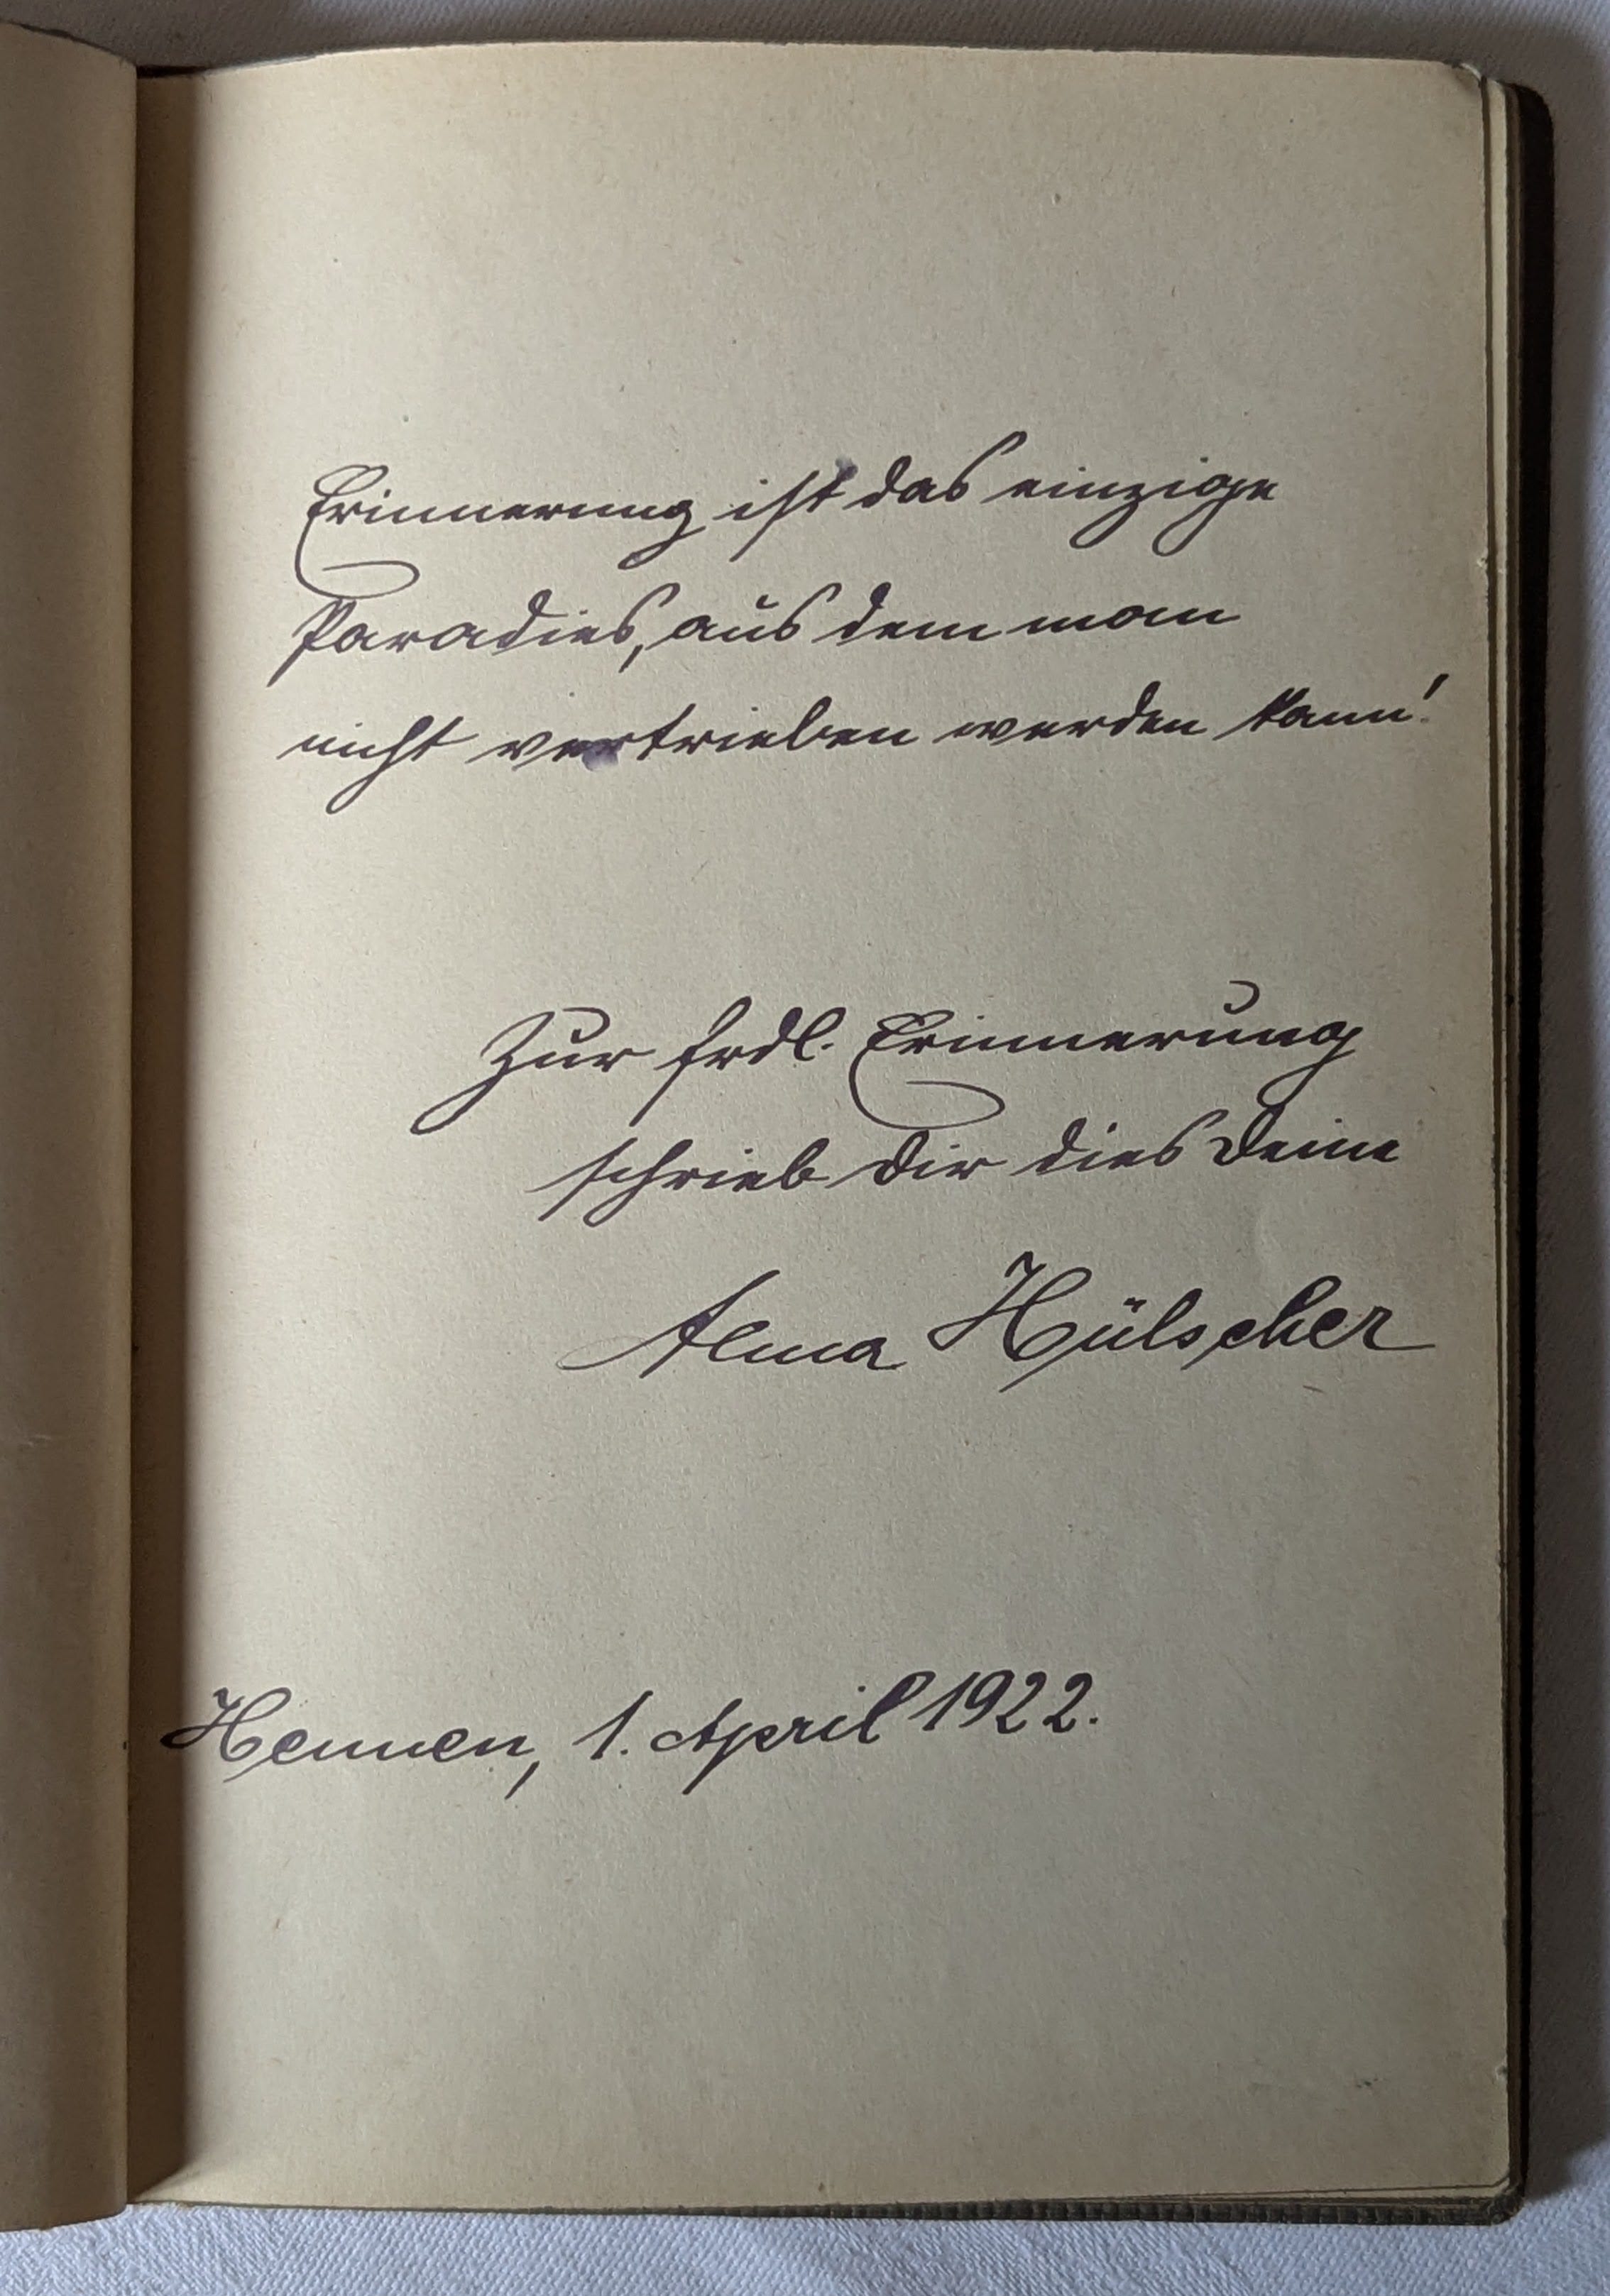 Erinnerung ist das einzige
Paradies, aus dem man
nicht vertrieben werden kann!
Zur frdl. Erinnerung
schrieb Dir dies Deine
Alma Hülscher
Hennen, 1. April 1922.